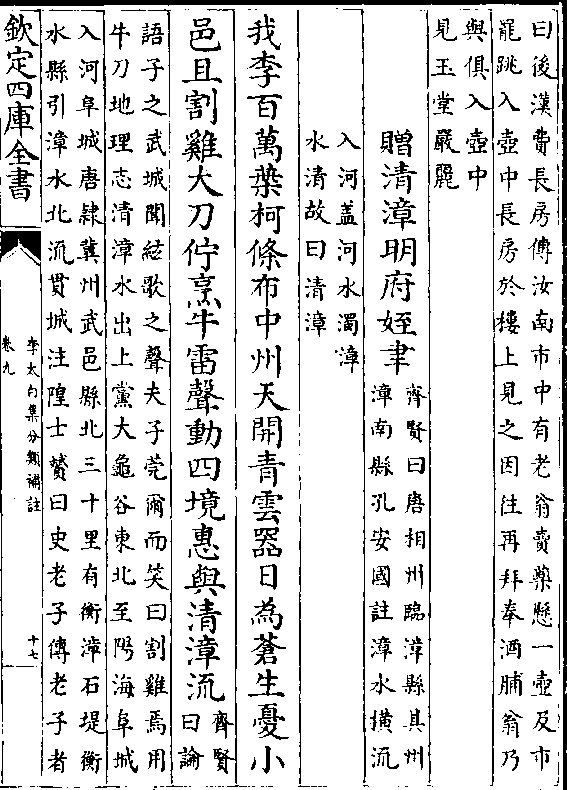 曰後漢費長房傳汝南市中有老翁賣藥懸一壺及市
罷跳入壺中長房於樓上見之因往再拜奉酒脯翁乃
與俱入壺中
見玉堂嚴麗
贈清漳明府姪聿
齊賢曰唐相州臨漳縣具州
漳南縣孔安國註漳水橫流
入河盖河水濁漳
水清故曰清漳
我李百萬葉柯條布中州天開青雲器日為蒼生憂小
邑且割雞大刀佇烹牛雷聲動四境惠與清漳流
齊賢
曰論
語子之武城聞絃歌之聲夫子莞爾而笑曰割雞焉用
牛刀地理志清漳水出上黨大龜谷東北至陽海阜城
入河阜城唐隸冀州武邑縣北三十里有衡漳石堤衡
水縣引漳水北流貫城注隍士贇曰史老子傳老子者
欽定四庫全書
李太白集分類補註
卷九
十七